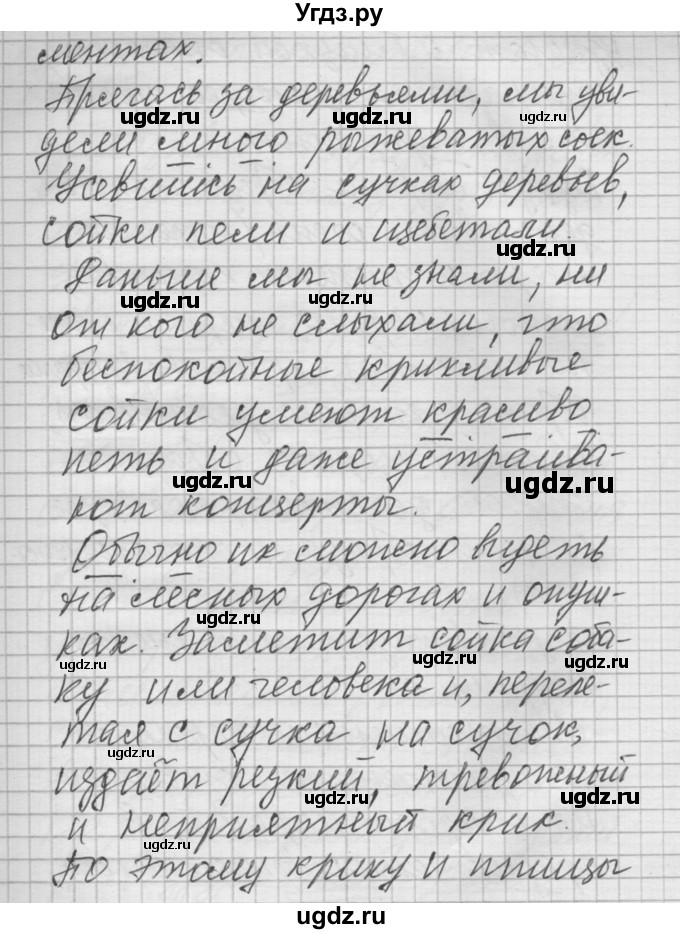 Угдз.ру
ментах.
Прячась за деревьями, мы уви-
дели много рыжеватых соек.
Усевшись на сучках деревьев,
сойки пели и щебетали.
Раньше мы не знали, ни
от кого не слыхали, что
беспокойные крикливые
сойки умеют красиво
петь и даже устраива-
ют концерты.
Обычно их можно видеть
на лесных дорогах и опуш-
ках. Заслетит сойка соба-
ку или человека и, переле-
тая с сучка на сучок,
издаёт резкий, тревожный
и неприятный крик.
По этому крику и птицы
ugdz.ru